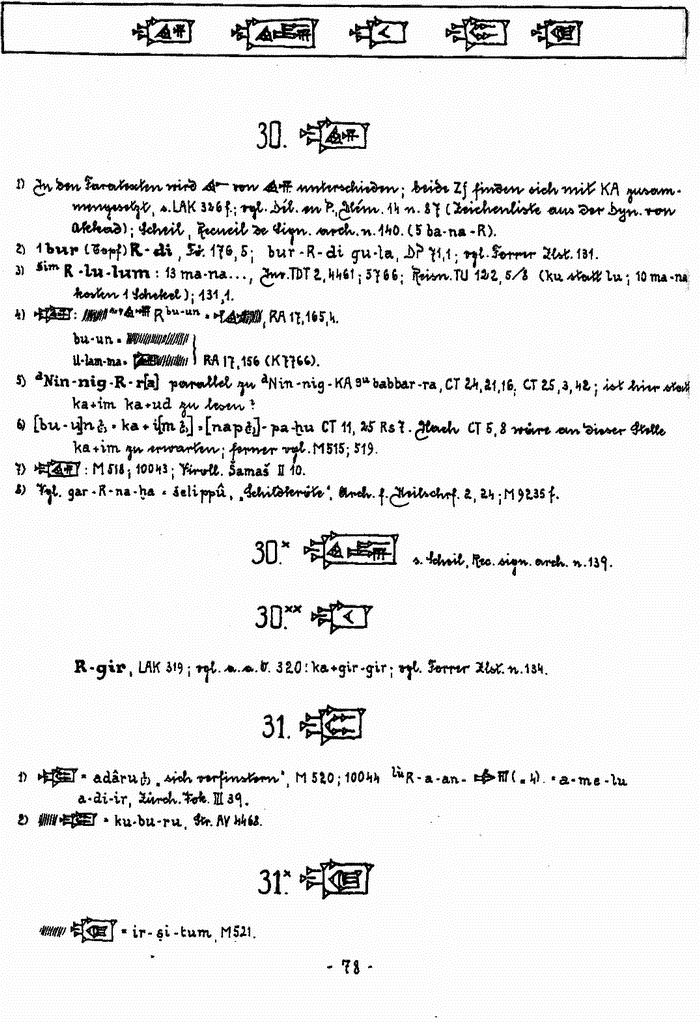 30.
1) In den Faratexten wird von unterschieden; beide Zf finden sich mit KA zusam-
mengesetzt, s. LAK 326 f.; vgl. Dél. en P., Mém. 14 n. 87 (Zeichenliste aus der Dyn. von
Akkad); Scheil, Recueil de Sign. arch. n. 140. (5 ba-na-R).
2) 1 bur (Topf) R-di, 176,5; bur-R-di gu-la, DP 71,1; vgl. Forrer Zlst. 131.
3) šim R-lu-lum: 13 ma-na..., Inv. TDT 2, 4461; 5766; Reisn. TU 122, 5/8 (ku statt lu; 10 ma-na
kosten 1 Schekel); 131,1.
4) : R bu-un = , RA 17, 165, 4.
bu-un =
il-lam-ma = RA 17, 156 (K 7766).
5) dNin-nig-R-r[a] parallel zu dNin-nig-KA gu babbar-ra, CT 24, 21, 16; CT 25, 3, 42; ist hier statt
ka+im ka+ud zu lesen?
6) CT 11, 25 Rs 7. Nach CT 5, 8 wäre an dieser Stelle
ka+im zu erwarten; ferner vgl. M 515; 519.
7) : M 518; 10043; Viroll. Šamaš II 10.
8) Vgl. gar-R-na-ḫa = šelippû, „Schildkröte“, Arch. f. Keilschrf. 2, 24; M 9235 f.
30.x s. Scheil, Rec. sign. arch. n. 139.
30.xx
R-gir, LAK 319; vgl. a. a. O. 320: ka+gir-gir; vgl. Forrer Zlst. n. 134.
31.
1) = adâru „sich verfinstern“, M 520; 10044 lù R-a-an- (= 4). = a-me-lu
a-di-ir, Zürch. Vok. III 39.
2) = ku-bu-ru, Str. AV 4468.
31.x
= ir-ṣi-tum, M 521.
- 78 -